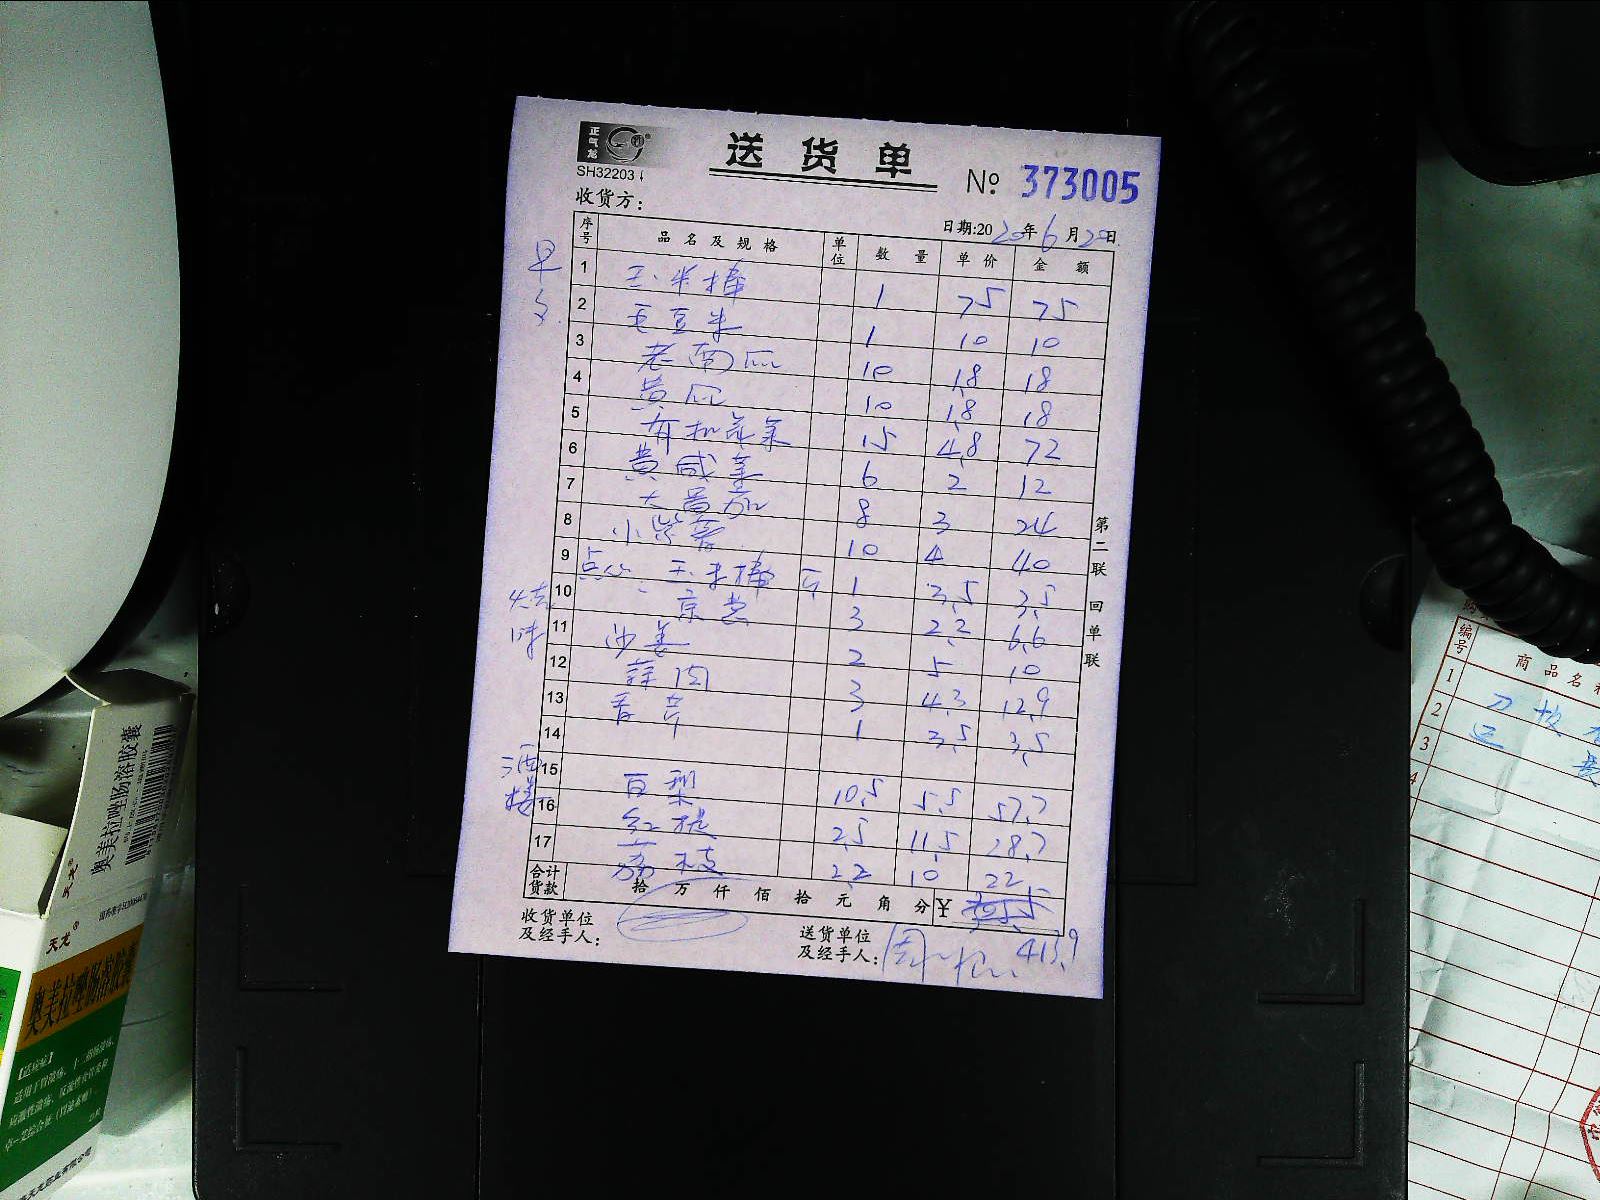 正气龙
送货单
SH32203
№ 373005
收货方：
日期:2020年6月20日
序号 品名及规格 单位 数量 单价 金额
早
1 玉米棒 1 75 75
2 毛豆米 1 10 10
3 老南瓜 10 1.8 18
4 黄瓜 10 1.8 18
5 有机花菜 15 4.8 72
6 黄咸菜 6 2 12
7 大番茄 8 3 24
8 小紫薯 10 4 40
9 点心 玉米棒 斤 1 3.5 3.5
10 京葱 3 2.2 6.6
烧味
11 沙姜 2 5 10
12 蒜肉 3 4.3 12.9
13 香芹 1 3.5 3.5
14
酒楼
15 百梨 10.5 5.5 57.7
16 红提 2.5 11.5 28.7
17 荔枝 2.2 10 22
合计货款 拾 万 仟 佰 拾 元 角 分 ¥
413.9
收货单位及经手人：
送货单位及经手人：
第二联 回单联
奥美拉唑肠溶胶囊
天龙®
天龙®
奥美拉唑肠溶胶囊
【适应症】
编号 商品名称
1
2
3
4